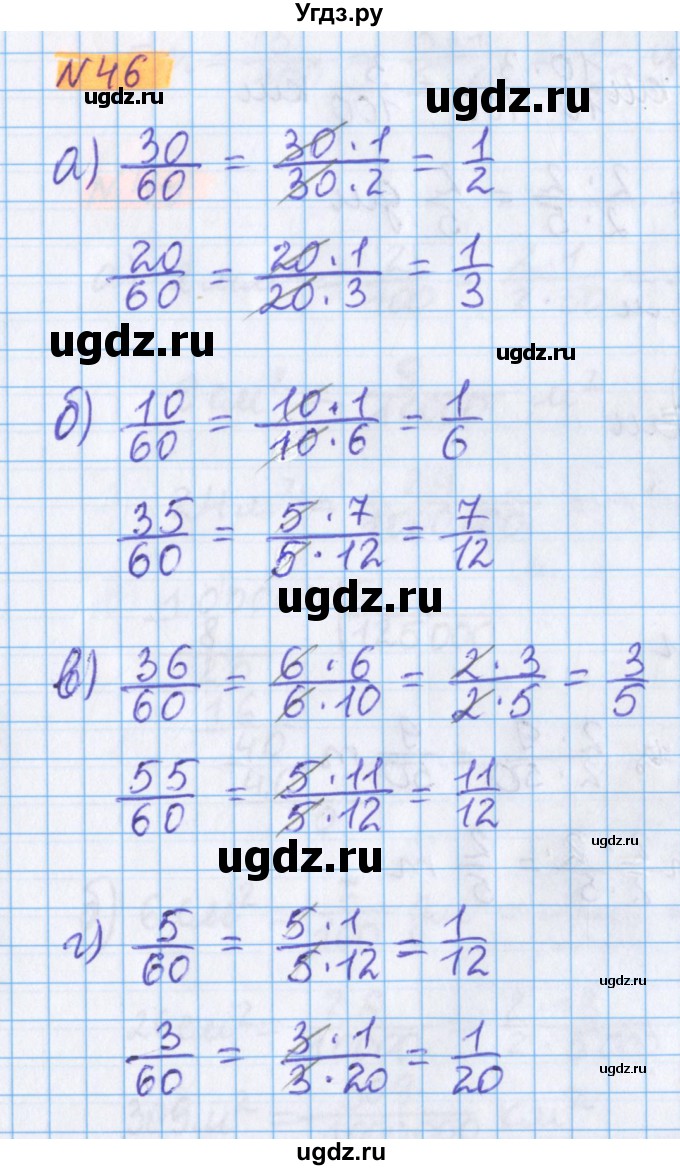 Угдз.ру
N 46
ugdz.ru
ugdz.ru
а) 30/60 = 30·1/30·2 = 1/2
20/60 = 20·1/20·3 = 1/3
ugdz.ru
ugdz.ru
б) 10/60 = 10·1/10·6 = 1/6
35/60 = 5·7/5·12 = 7/12
ugdz.ru
в) 36/60 = 6·6/6·10 = 2·3/2·5 = 3/5
55/60 = 5·11/5·12 = 11/12
ugdz.ru
ugdz.ru
г) 5/60 = 5·1/5·12 = 1/12
ugdz.ru
3/60 = 3·1/3·20 = 1/20
ugdz.ru
ugdz.ru